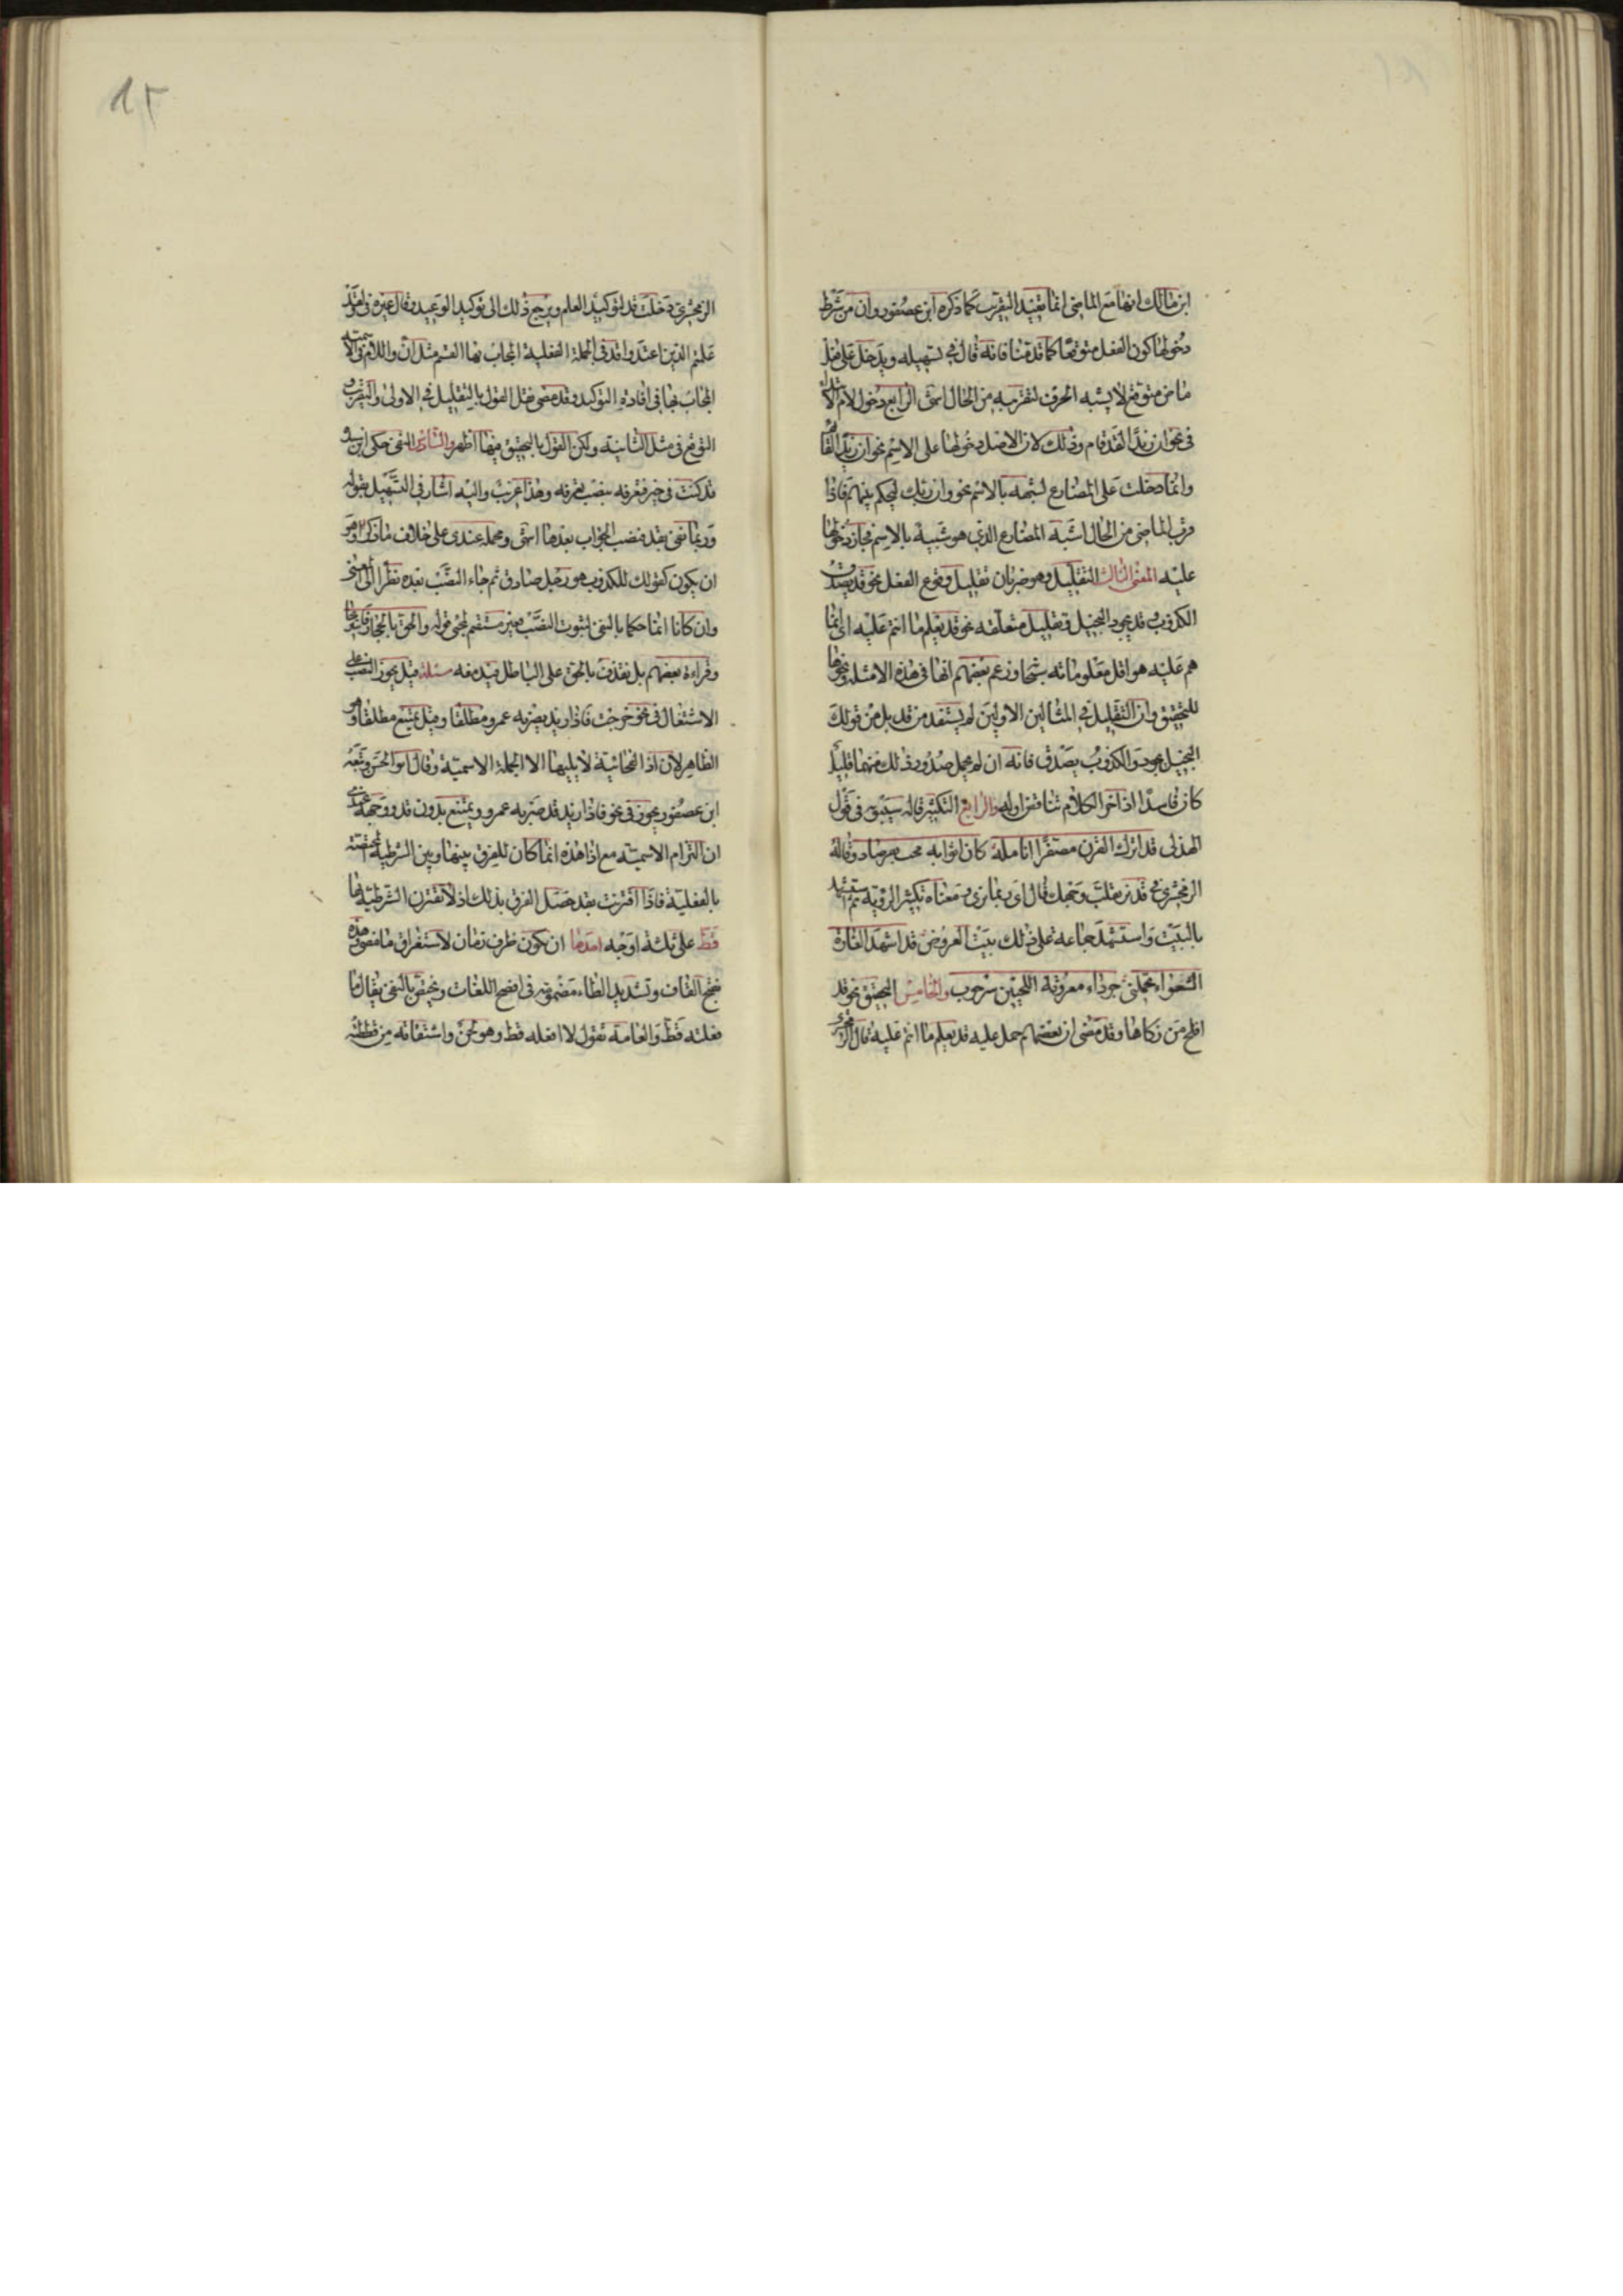 ابن مالك انها مع الماضى انما تفيد التقريب كما ذكره ابن عصفور وان من شرط
دخولها كون الفعل متوقعا كما قدمنا فانه قال فى تسهيله ويدخل على فعل
ماض متوقع لا يشبه الحرف لتقريبه من الحال انتهى الرابع دخول لام الابتداء
فى نحو ان زيدا لقد قام وذلك لان الاصل دخولها على الاسم نحو ان زيدا لقائم
وانما دخلت على المضارع لشبهه بالاسم نحو وان ربك ليحكم بينهم فاذا
قرب الماضى من الحال اشبه المضارع الذى هو شبيه بالاسم فجاز دخولها
عليه المعنى الثالث التقليل وهو ضربان تقليل وقوع الفعل نحو قد يصدق
الكذوب قد يجود البخيل وتقليل متعلقه نحو قد يعلم ما انتم عليه اى انما
هم عليه هو اقل معلوماته سبحانه وزعم بعضهم انها فى هذه الامثلة ونحوها
للتحقيق وان التقليل فى المثالين الاولين لم يستفد من قد بل من قولك
البخيل يجود والكذوب يصدق فانه ان لم يحمل صدور ذلك منهما قليلا
كان فاسدا اذ اخر الكلام تناقض اوله والرابع التكثير قاله سيبويه فى قول
الهذلى قد اترك القرن مصفرا انامله كان اثوابه مجت بفرصاد وقاله
الزمخشرى فى قد نرى تقلب وجهك قال اى ربما نرى ومعناه تكثير الرؤية ثم استشهد
بالبيت واستشهد جماعة على ذلك ببيت العروض قد اشهد الغارة
الشعواء تحملنى جرداء معروقة اللحيين سرحوب والخامس التحقيق نحو قد
افلح من زكاها وقد مضى ان بعضهم حمل عليه قد يعلم ما انتم عليه قال
١٢
الزمخشرى دخلت قد لتوكيد العلم ويرجع ذلك الى توكيد الوعيد وقال غيره فى ولقد
علمتم الذين اعتدوا قد فى الجملة الفعلية المجاب بها القسم مثل ان واللام فى الاسمية
المجاب بها فى افادة التوكيد وقد مضى نقل القول بالتقليل فى الاولى والتقريب و
التوقع فى مثل الثانية ولكن القول بالتحقيق فيهما اظهر والسادس النفى حكى ابن سيده
قد كنت فى خير فتعرفه بنصب تعرفه وهذا غريب واليه اشار فى التسهيل بقوله
وربما نفى بقد فنصب الجواب بعدها انتهى ومحمله عندى على خلاف ما ذكر وهو
ان يكون كقولك للكذوب هو رجل صادق ثم جاء النصب بعده نظرا الى المعنى
وان كانا انما حكما بالنفى لثبوت النصب فغير مستقيم لمجئ قوله والحق بالحجاز فاستريحا
وقراءة بعضهم بل نقذف بالحق على الباطل فيدمغه مسئلة قيل يجوز النصب على
الاشتغال فى نحو خرجت فاذا زيد يضربه عمرو مطلقا وقيل يمتنع مطلقا وهو
الظاهر لان اذا الفجائية لا يليها الا الجملة الاسمية وقال ابو الحسن وتبعه
ابن عصفور يجوز فى نحو فاذا زيد قد ضربه عمرو ويمتنع بدون قد ووجهه عندى
ان التزام الاسمية مع اذا هذه انما كان للفرق بينها وبين الشرطية المختصة
بالفعلية فاذا اقترنت بقد حصل الفرق بذلك اذ لا تقترن الشرطية بها
قط على ثلثة اوجه احدها ان تكون ظرف زمان لاستغراق ما مضى وهذه
بفتح القاف وتشديد الطاء مضمومة فى افصح اللغات وتختص بالنفى يقال ما
فعلته قط والعامة تقول لا افعله قط وهو لحن واشتقاقه من قططته